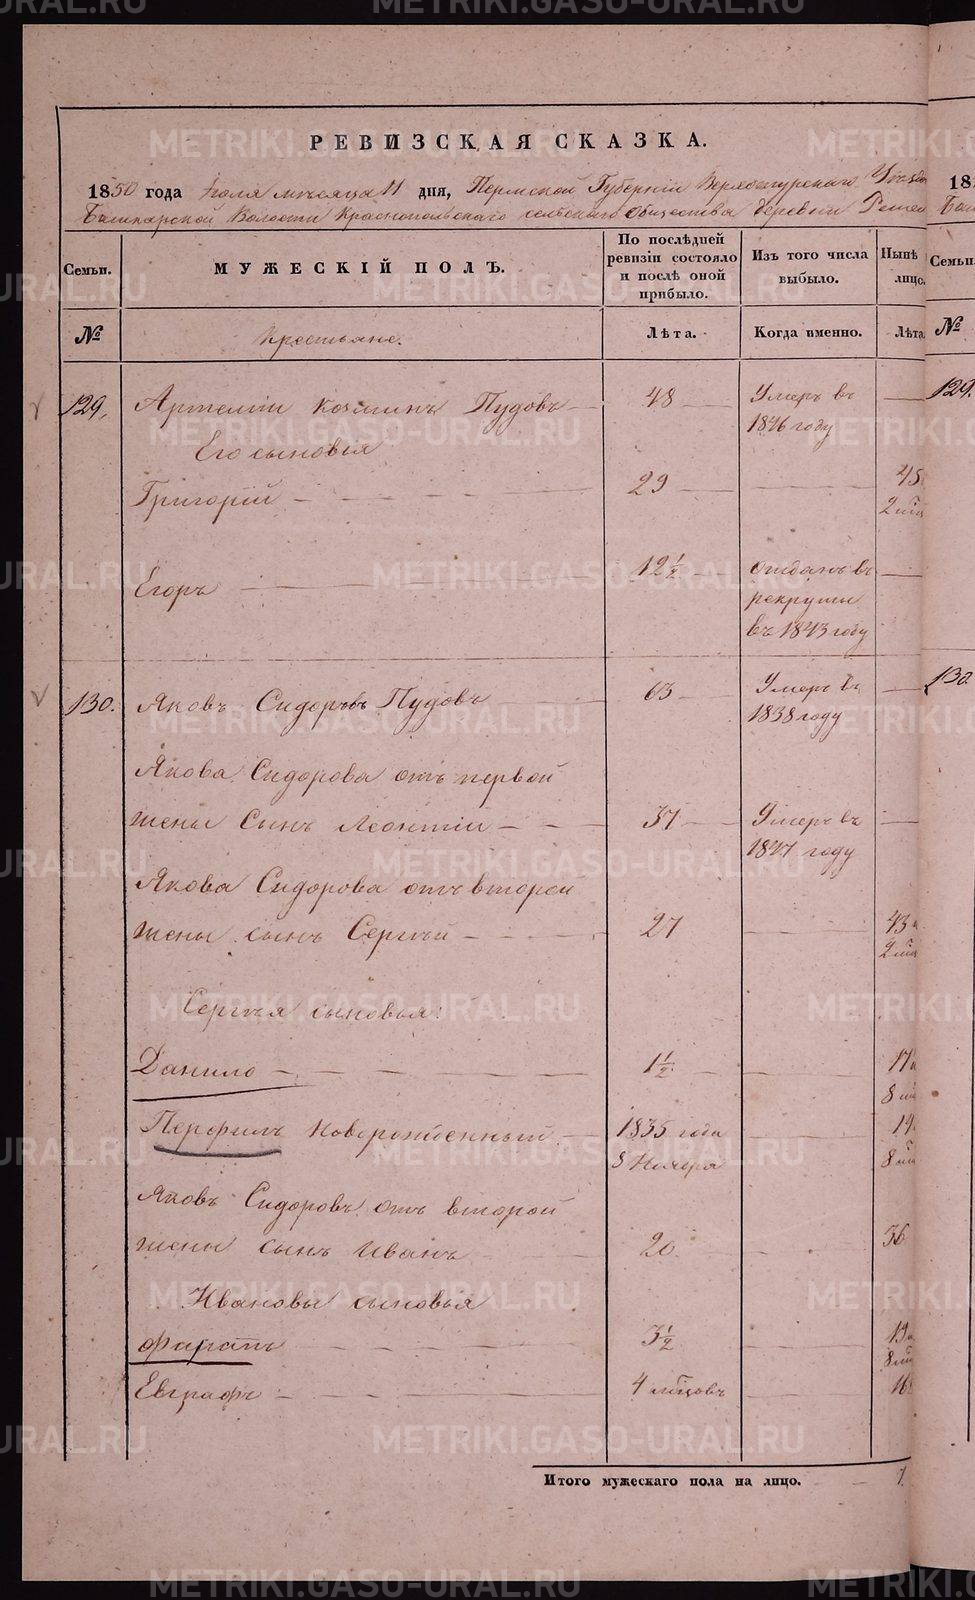 РЕВИЗСКАЯ СКАЗКА.
1850 года Іюля мѣсяца 11 дня, Пермской Губерніи Верхотурскаго Уѣзда
Башкарской Волости Краснопольскаго сельскаго Общества деревни
Семьи. МУЖЕСКІЙ ПОЛЪ. По послѣдней ревизіи состояло и послѣ оной прибыло. Изъ того числа выбыло. Нынѣ лицо.
№ Крестьяне. Лѣта. Когда именно. Лѣта
129. Артемій Козминъ Пудовъ 48 Умеръ въ
1846 году
Его сыновья
Григорій 29 45
Егоръ 12½ отданъ въ
рекруты
въ 1843 году
130. Яковъ Сидоровъ Пудовъ 63 Умеръ въ
1838 году
Якова Сидорова отъ первой
жены сынъ Леонтій 37 Умеръ въ
1847 году
Якова Сидорова отъ второй
жены сынъ Сергѣй 27 43
Сергѣя сыновья:
Данило 1½ 17
8
Перфилъ новорожденный 1835 года
8 Ноября
Яковъ Сидоровъ отъ второй
жены сынъ Иванъ 20 36
Ивановы сыновья
3½ 19
Евграфъ 4 мѣсцовъ 16
Итого мужескаго пола на лицо.
18
129.
130.
Семьи.
№
METRIKI.GASO-URAL.RU